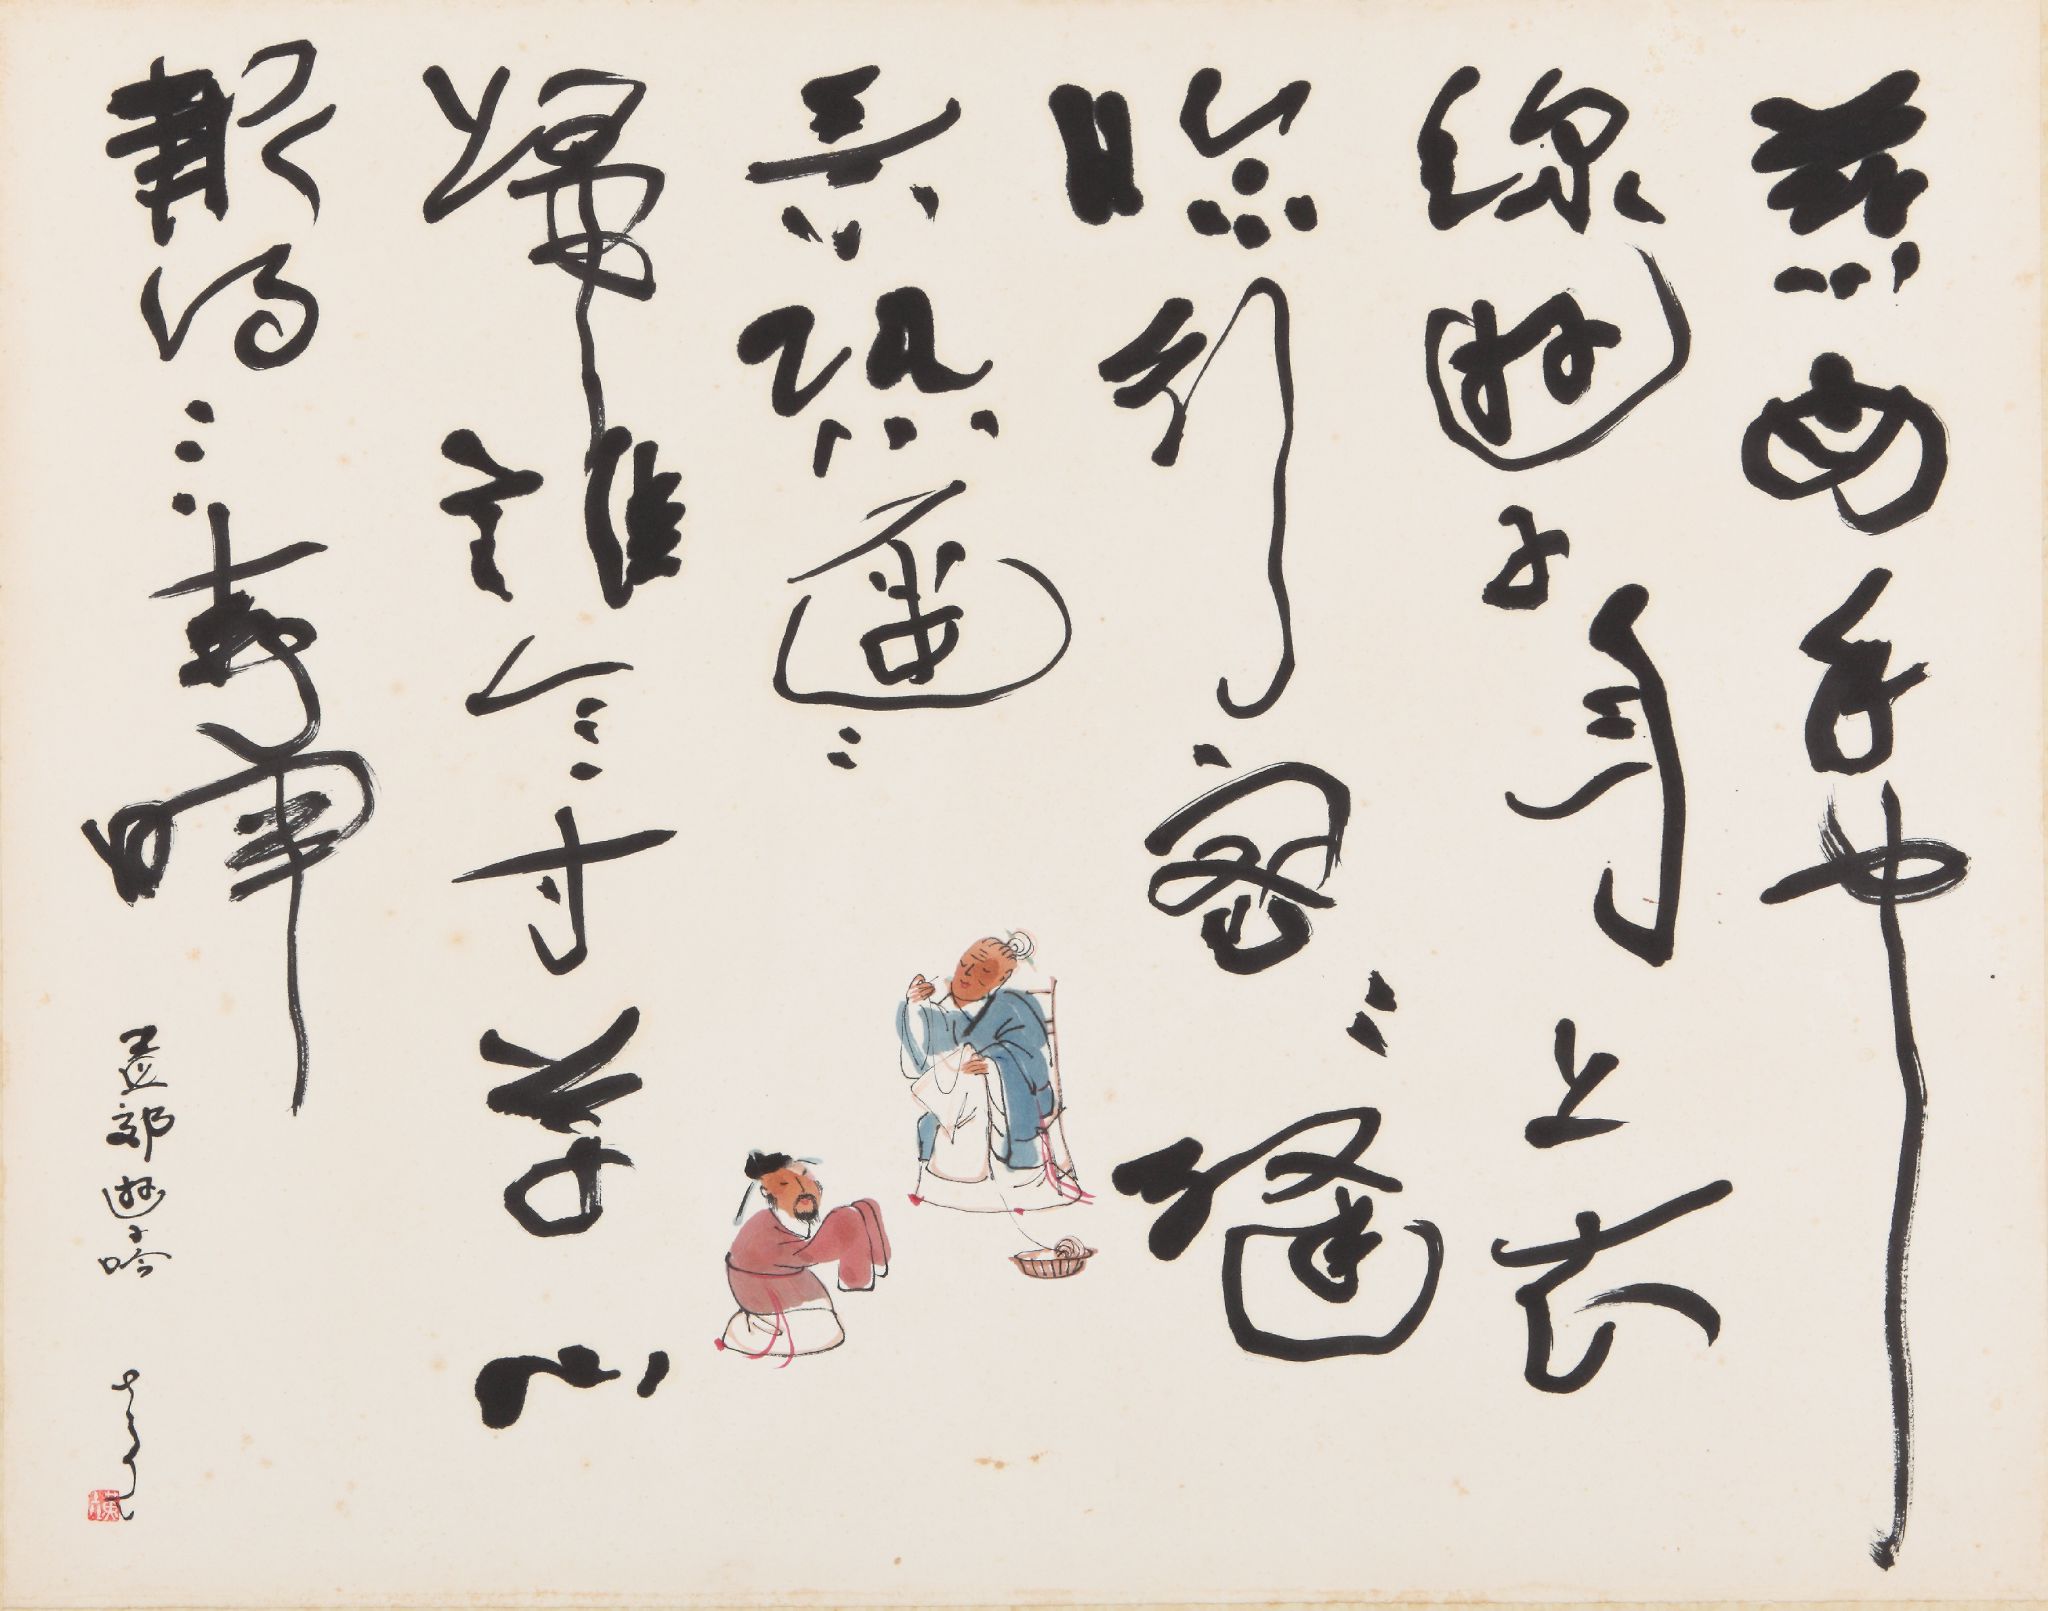 慈母手中
線遊子身上衣
臨行密〻縫
意恐遲〻
歸誰言寸草心
報得三春暉
孟郊遊子吟